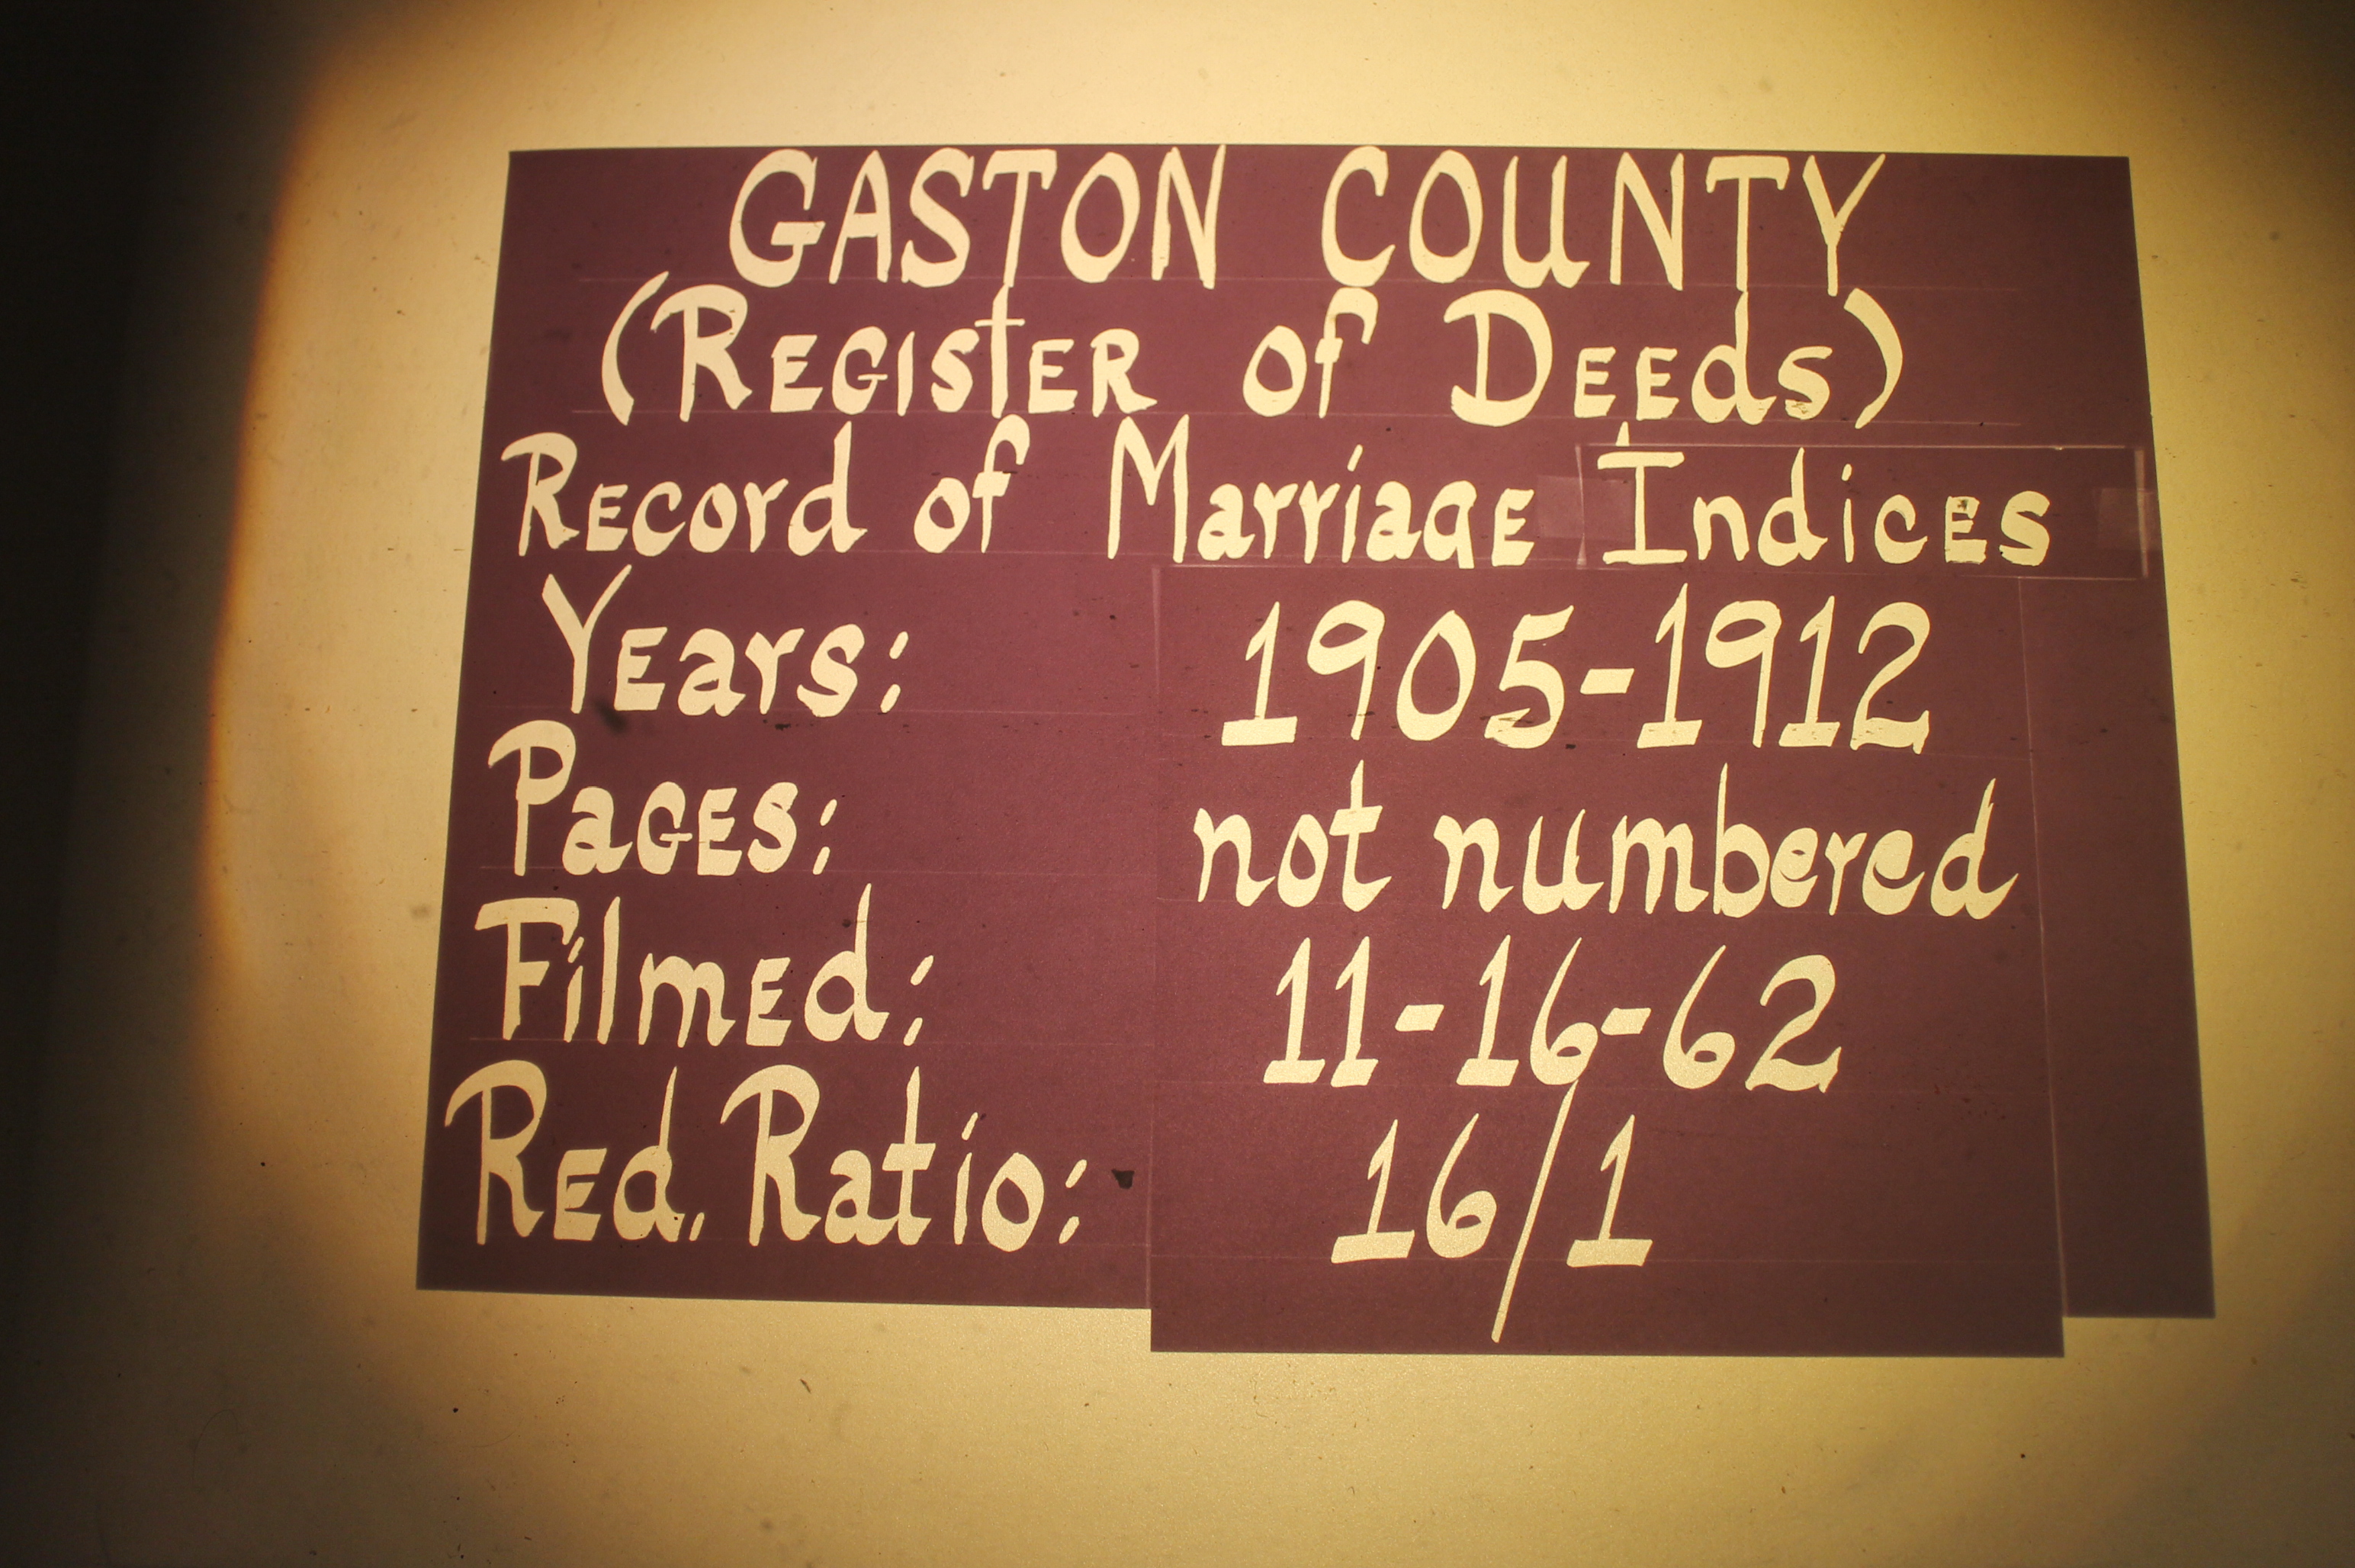 GASTON COUNTY
(REGISTER of DEEdS)
REcord of MarriagE IndicES
YEars: 1905-1912
PaGES: not numbered
FilmEd: 11-16-62
REd. Ratio: 16/1